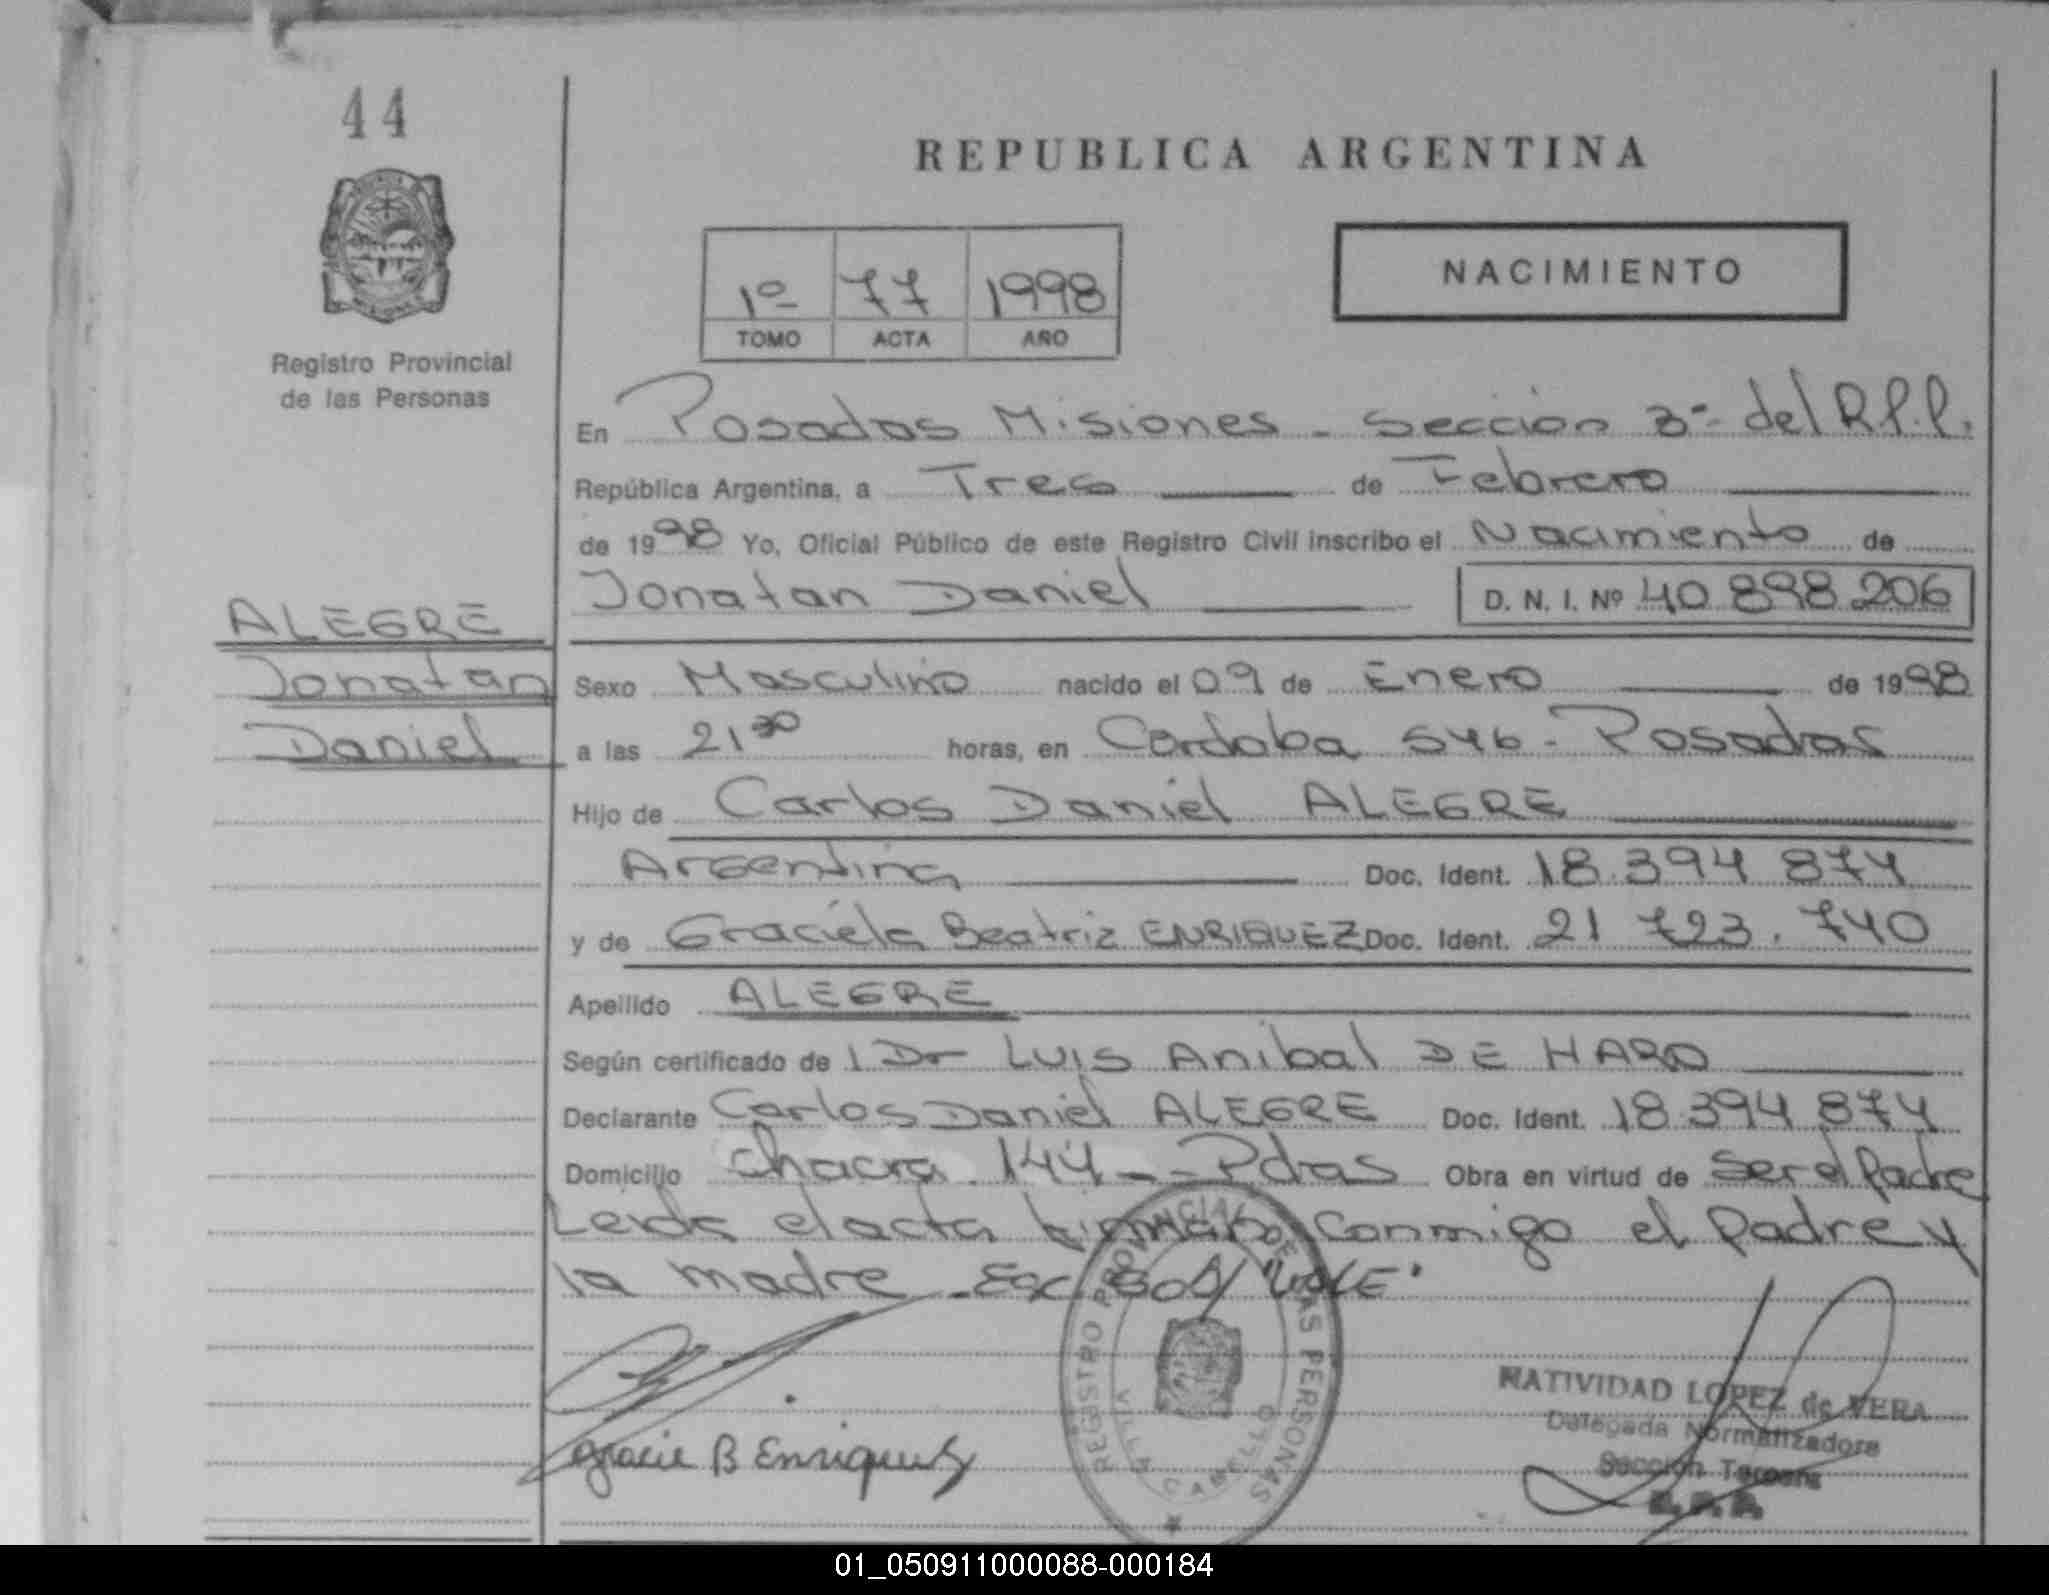 44
REPUBLICA ARGENTINA
NACIMIENTO
1º 77 1998
TOMO ACTA AÑO
Registro Provincial
de las Personas
En Posadas Misiones - Sección 3ª del R.P.P.
República Argentina, a Tres de Febrero
de 1998 Yo, Oficial Público de este Registro Civil inscribo el Nacimiento de
Jonatan Daniel D. N. I. Nº 40 898 206
ALEGRE
Jonatan
Daniel
Sexo Masculino nacido el 09 de Enero de 1998
a las 21 30 horas, en Cordoba 546 - Posadas
Hijo de Carlos Daniel ALEGRE
Argentina Doc. Ident. 18.394 874
y de Graciela Beatriz ENRIQUEZ Doc. Ident. 21 723.740
Apellido ALEGRE
Según certificado de l Dr LUIS Anibal DE HARO
Declarante Carlos Daniel ALEGRE Doc. Ident. 18.394 874
Domicilio Chacra 144 - - Pdas Obra en virtud de Ser el Padre
Leida el acta firman conmigo el Padre y
la madre - "VALE"
Gracie B Enriquez
REGISTRO PROVINCIAL DE LAS PERSONAS
VILLA CABELLO
NATIVIDAD LOPEZ de VERA
Delegada Normalizadora
Sección Tercera
R.P.P.
01_050911000088-000184